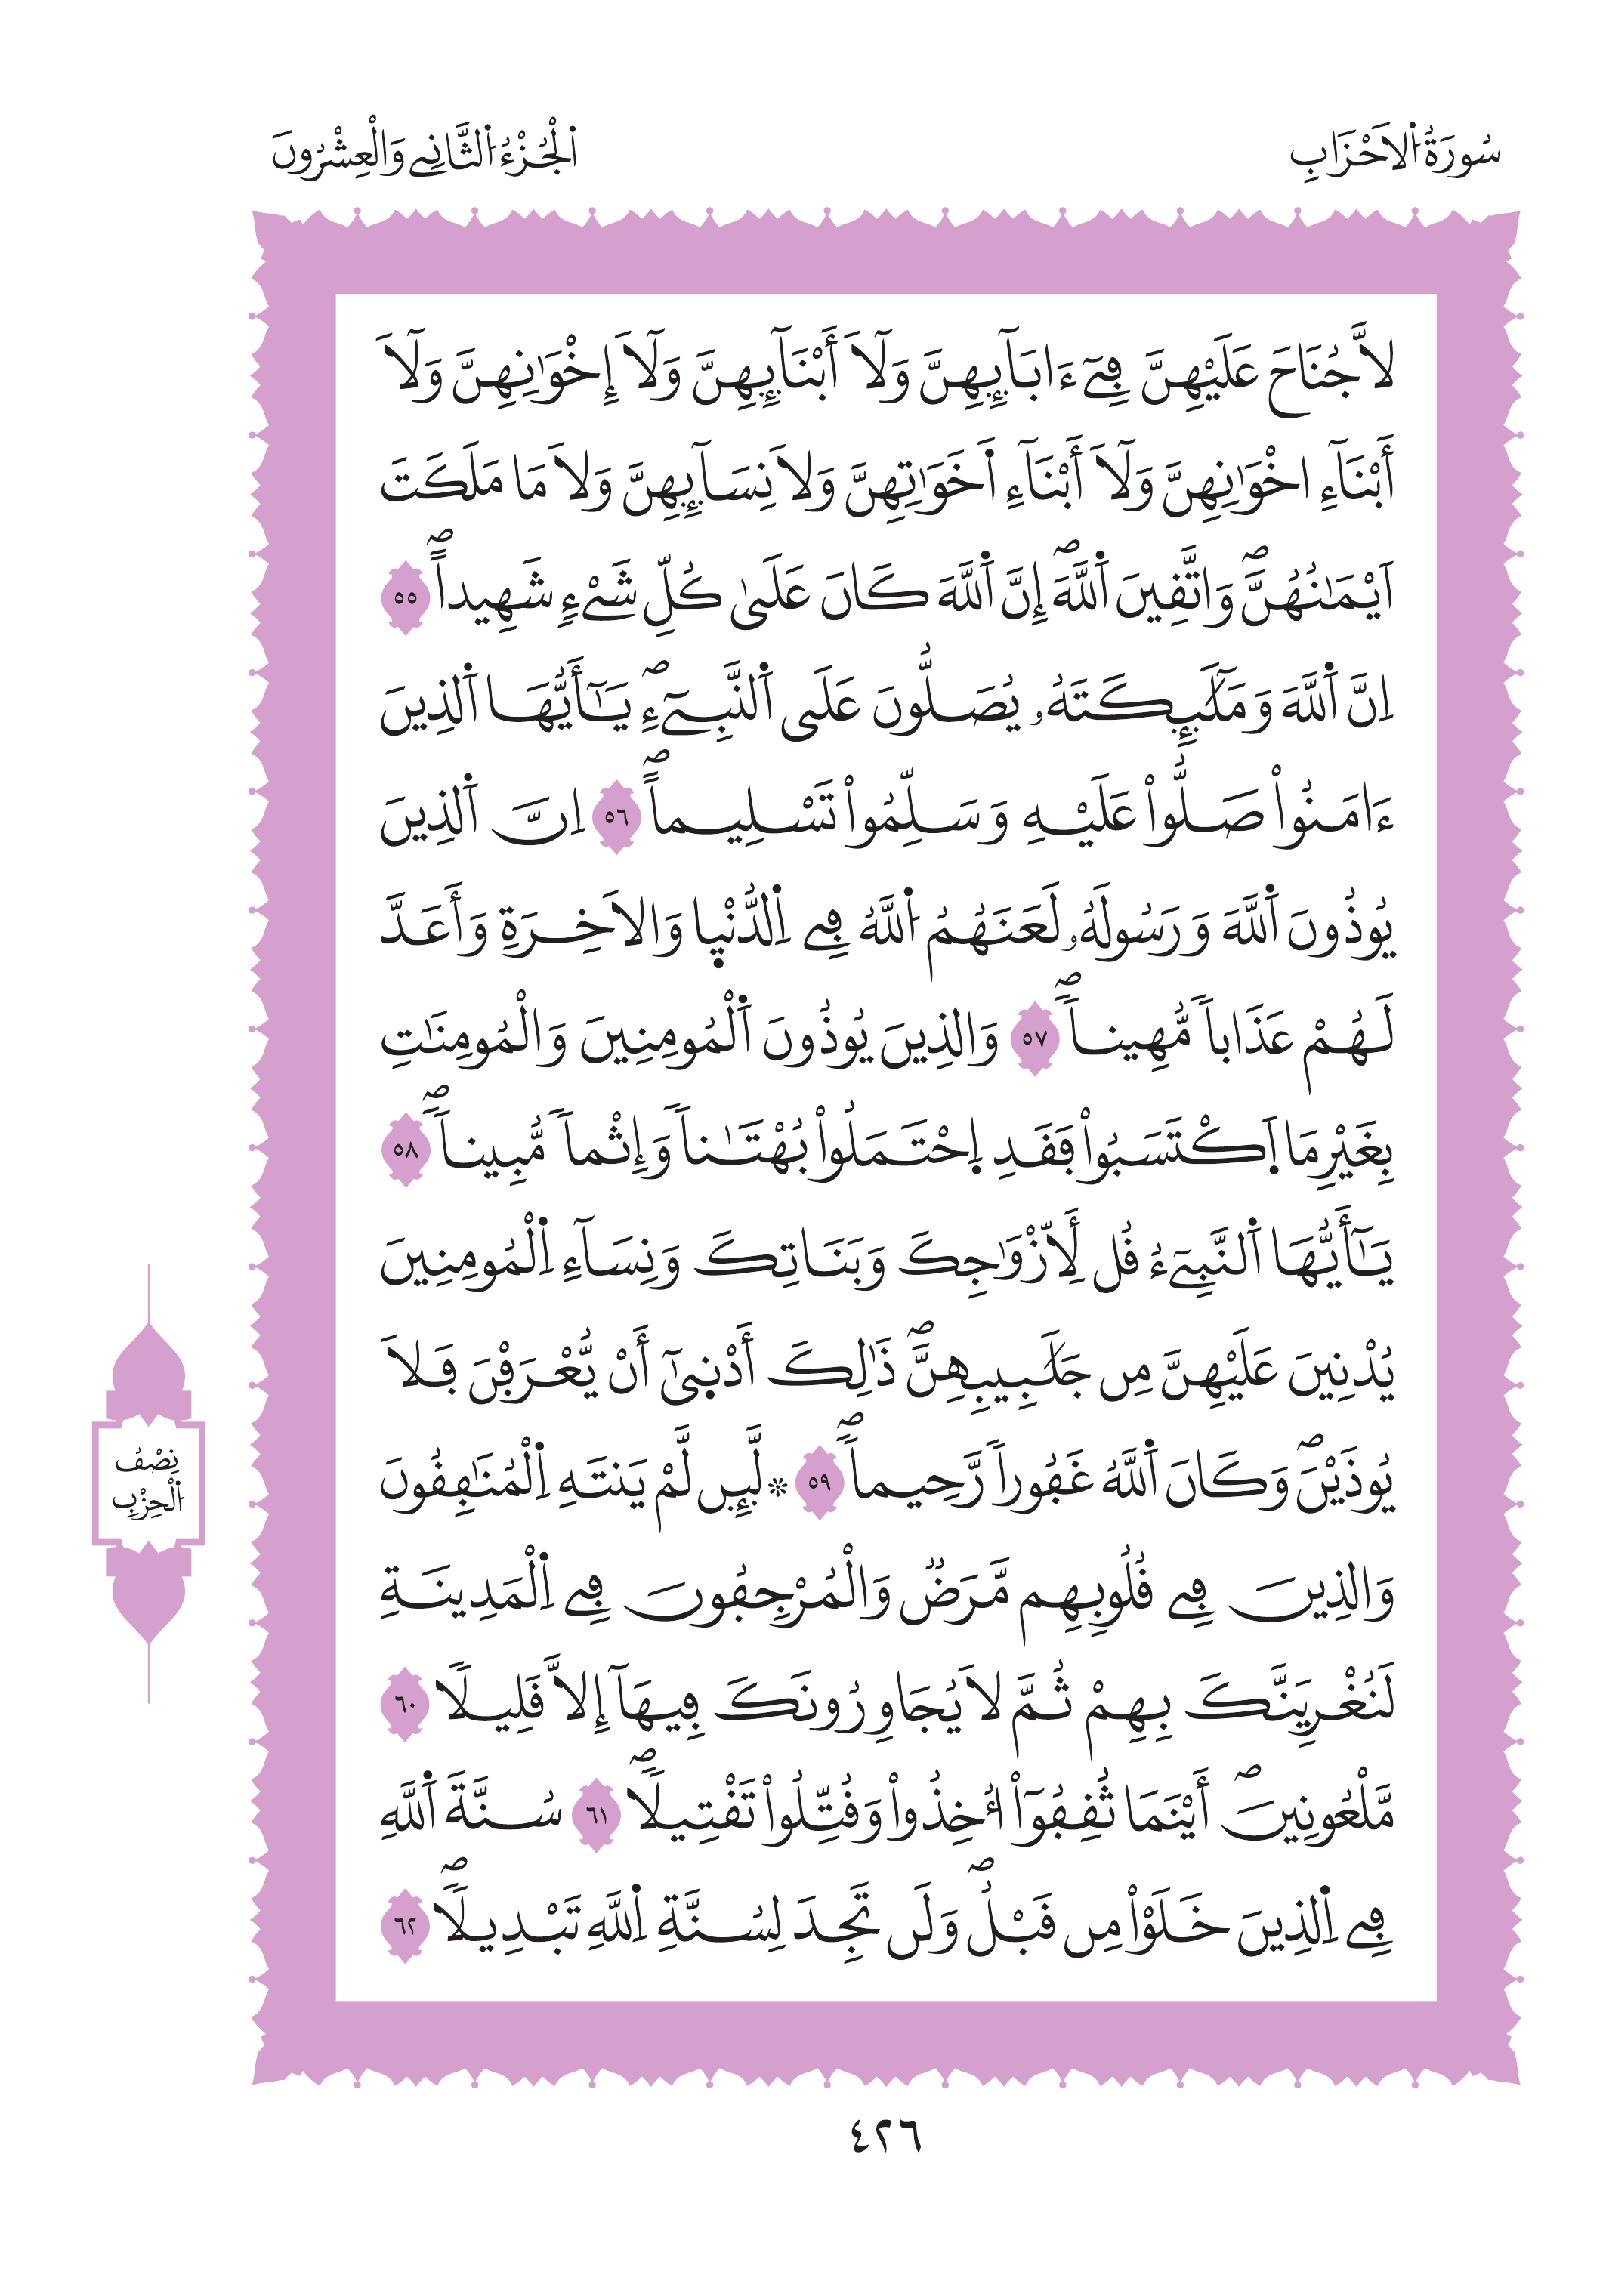 سُورَةُ اُ۬لَاحْزَابِ
اَ۬لْجُزْءُ اُ۬لثَّانِے وَالْعِشْرُونَ
لَّا جُنَاحَ عَلَيْهِنَّ فِےٓ ءَابَآئِهِنَّ وَلَآ أَبْنَآئِهِنَّ وَلَآ إِخْوَٰنِهِنَّ وَلَآ
أَبْنَآءِ اخْوَٰنِهِنَّ وَلَآ أَبْنَآءِ اَ۬خَوَٰتِهِنَّ وَلَا نِسَآئِهِنَّ وَلَا مَا مَلَكَتَ
اَيْمَٰنُهُنَّۖ وَاتَّقِينَ اَ۬للَّهَۖ إِنَّ اَ۬للَّهَ كَانَ عَلَىٰ كُلِّ شَےْءٖ شَهِيداًۖ ٥٥
اِنَّ اَ۬للَّهَ وَمَلَٰٓئِكَتَهُۥ يُصَلُّونَ عَلَى اَ۬لنَّبِےٓءِۖ يَٰٓأَيُّهَا اَ۬لذِينَ
ءَامَنُواْ صَلُّواْ عَلَيْهِ وَسَلِّمُواْ تَسْلِيماًۖ ٥٦ اِنَّ اَ۬لذِينَ
يُوذُونَ اَ۬للَّهَ وَرَسُولَهُۥ لَعَنَهُمُ اُ۬للَّهُ فِے اِ۬لدُّنْي۪ا وَالَاخِرَةِ وَأَعَدَّ
لَهُمْ عَذَاباٗ مُّهِيناٗۖ ٥٧ وَالذِينَ يُوذُونَ اَ۬لْمُومِنِينَ وَالْمُومِنَٰتِ
بِغَيْرِ مَا اَ۪كْتَسَبُواْ فَقَدِ اِ۪حْتَمَلُواْ بُهْتَٰناٗ وَإِثْماٗ مُّبِيناٗۖ ٥٨
يَٰٓأَيُّهَا اَ۬لنَّبِےٓءُ قُل لِّأَزْوَٰجِكَ وَبَنَاتِكَ وَنِسَآءِ اِ۬لْمُومِنِينَ
يُدْنِينَ عَلَيْهِنَّ مِن جَلَٰبِيبِهِنَّۖ ذَٰلِكَ أَدْن۪يٰٓ أَنْ يُّعْرَفْنَ فَلَا
يُوذَيْنَۖ وَكَانَ اَ۬للَّهُ غَفُوراٗ رَّحِيماٗۖ ٥٩ ۞ لَّئِن لَّمْ يَنتَهِ اِ۬لْمُنَٰفِقُونَ
وَالذِينَ فِے قُلُوبِهِم مَّرَضٞ وَالْمُرْجِفُونَ فِے اِ۬لْمَدِينَةِ
لَنُغْرِيَنَّكَ بِهِمْ ثُمَّ لَا يُجَاوِرُونَكَ فِيهَآ إِلَّا قَلِيلاٗ ٦٠
مَّلْعُونِينَۖ أَيْنَمَا ثُقِفُوٓاْ أُخِذُواْ وَقُتِّلُواْ تَقْتِيلاٗۖ ٦١ سُنَّةَ اَ۬للَّهِ
فِے اِ۬لذِينَ خَلَوْاْ مِن قَبْلُۖ وَلَن تَجِدَ لِسُنَّةِ اِ۬للَّهِ تَبْدِيلاٗۖ ٦٢
نِصْفُ
اُ۬لْحِزْبِ
٤٢٦